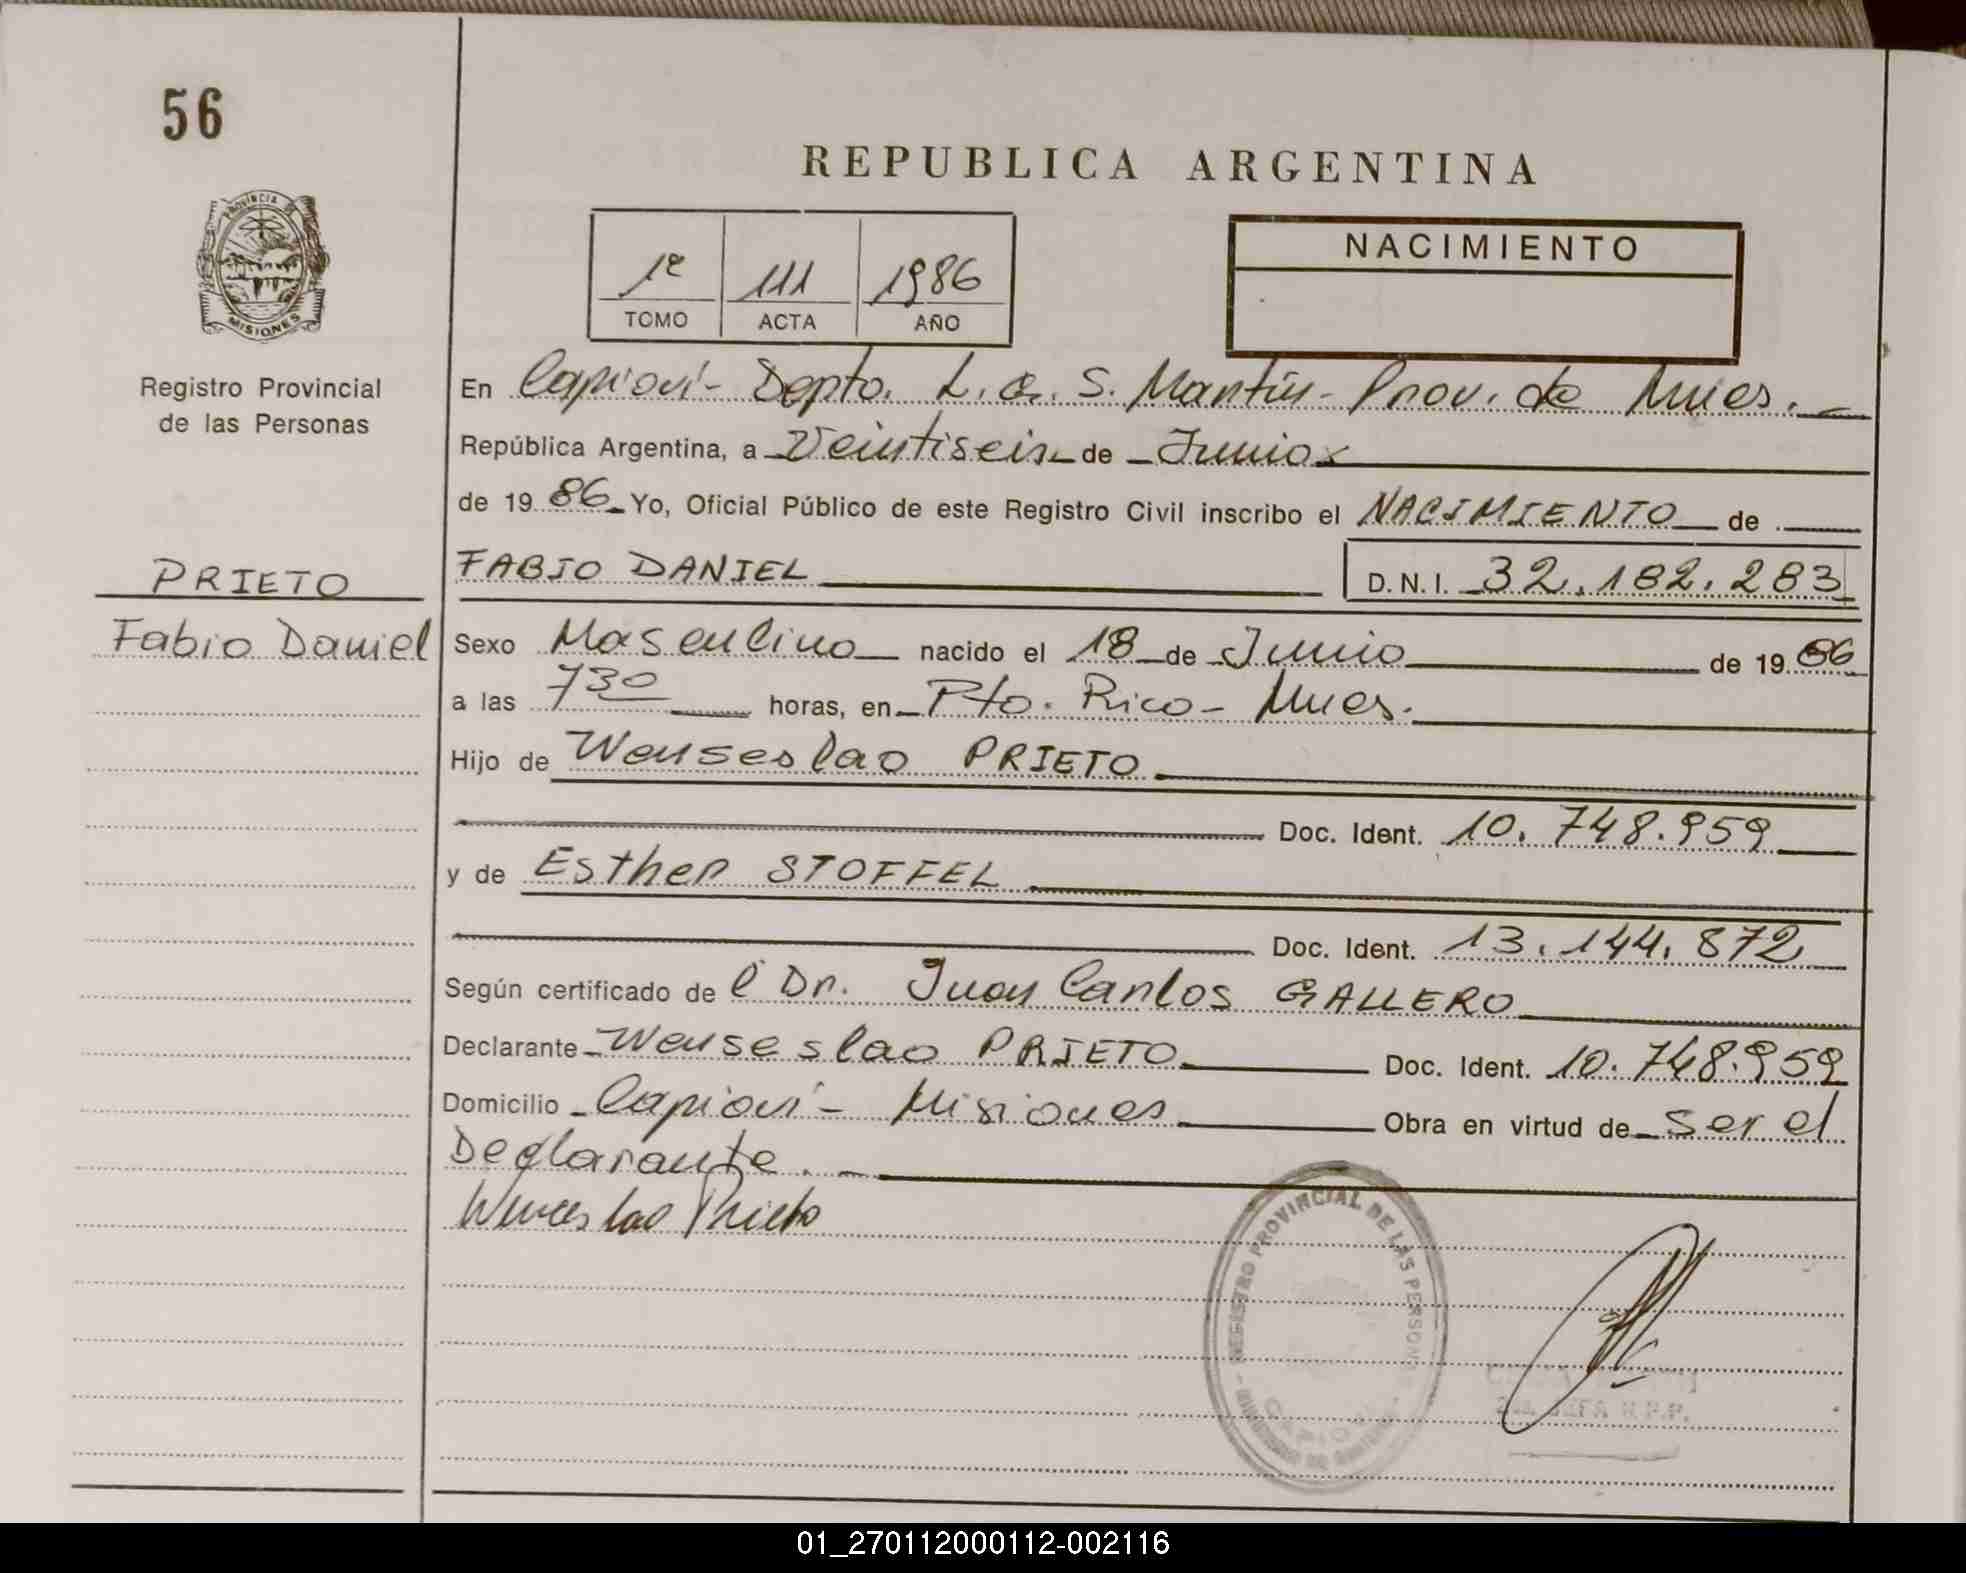 56
REPUBLICA ARGENTINA
PROVINCIA DE
MISIONES
1º 111 1986
TOMO ACTA AÑO
NACIMIENTO
Registro Provincial
de las Personas
En Capioví - Depto. L. G. S. Martín - Prov. de Mnes. -
República Argentina, a Veintiseis de Junio
de 19 86 Yo, Oficial Público de este Registro Civil inscribo el NACIMIENTO de
PRIETO
FABIO DANIEL D.N.I. 32.182.283
Fabio Daniel
Sexo Masculino nacido el 18 de Junio de 19 86
a las 730 horas, en Pto. Rico - Mnes.
Hijo de Wenseslao PRIETO
Doc. Ident. 10.748.959
y de Esther STOFFEL
Doc. Ident. 13.144.872
Según certificado de l Dr. Juan Carlos GALLERO
Declarante Wenseslao PRIETO Doc. Ident. 10.748.959
Domicilio Capioví - Misiones Obra en virtud de ser el
Declarante. -
Wenceslao Prieto
REGISTRO PROVINCIAL DE LAS PERSONAS
CAPIOVI
JEFA R.P.P.
01_270112000112-002116